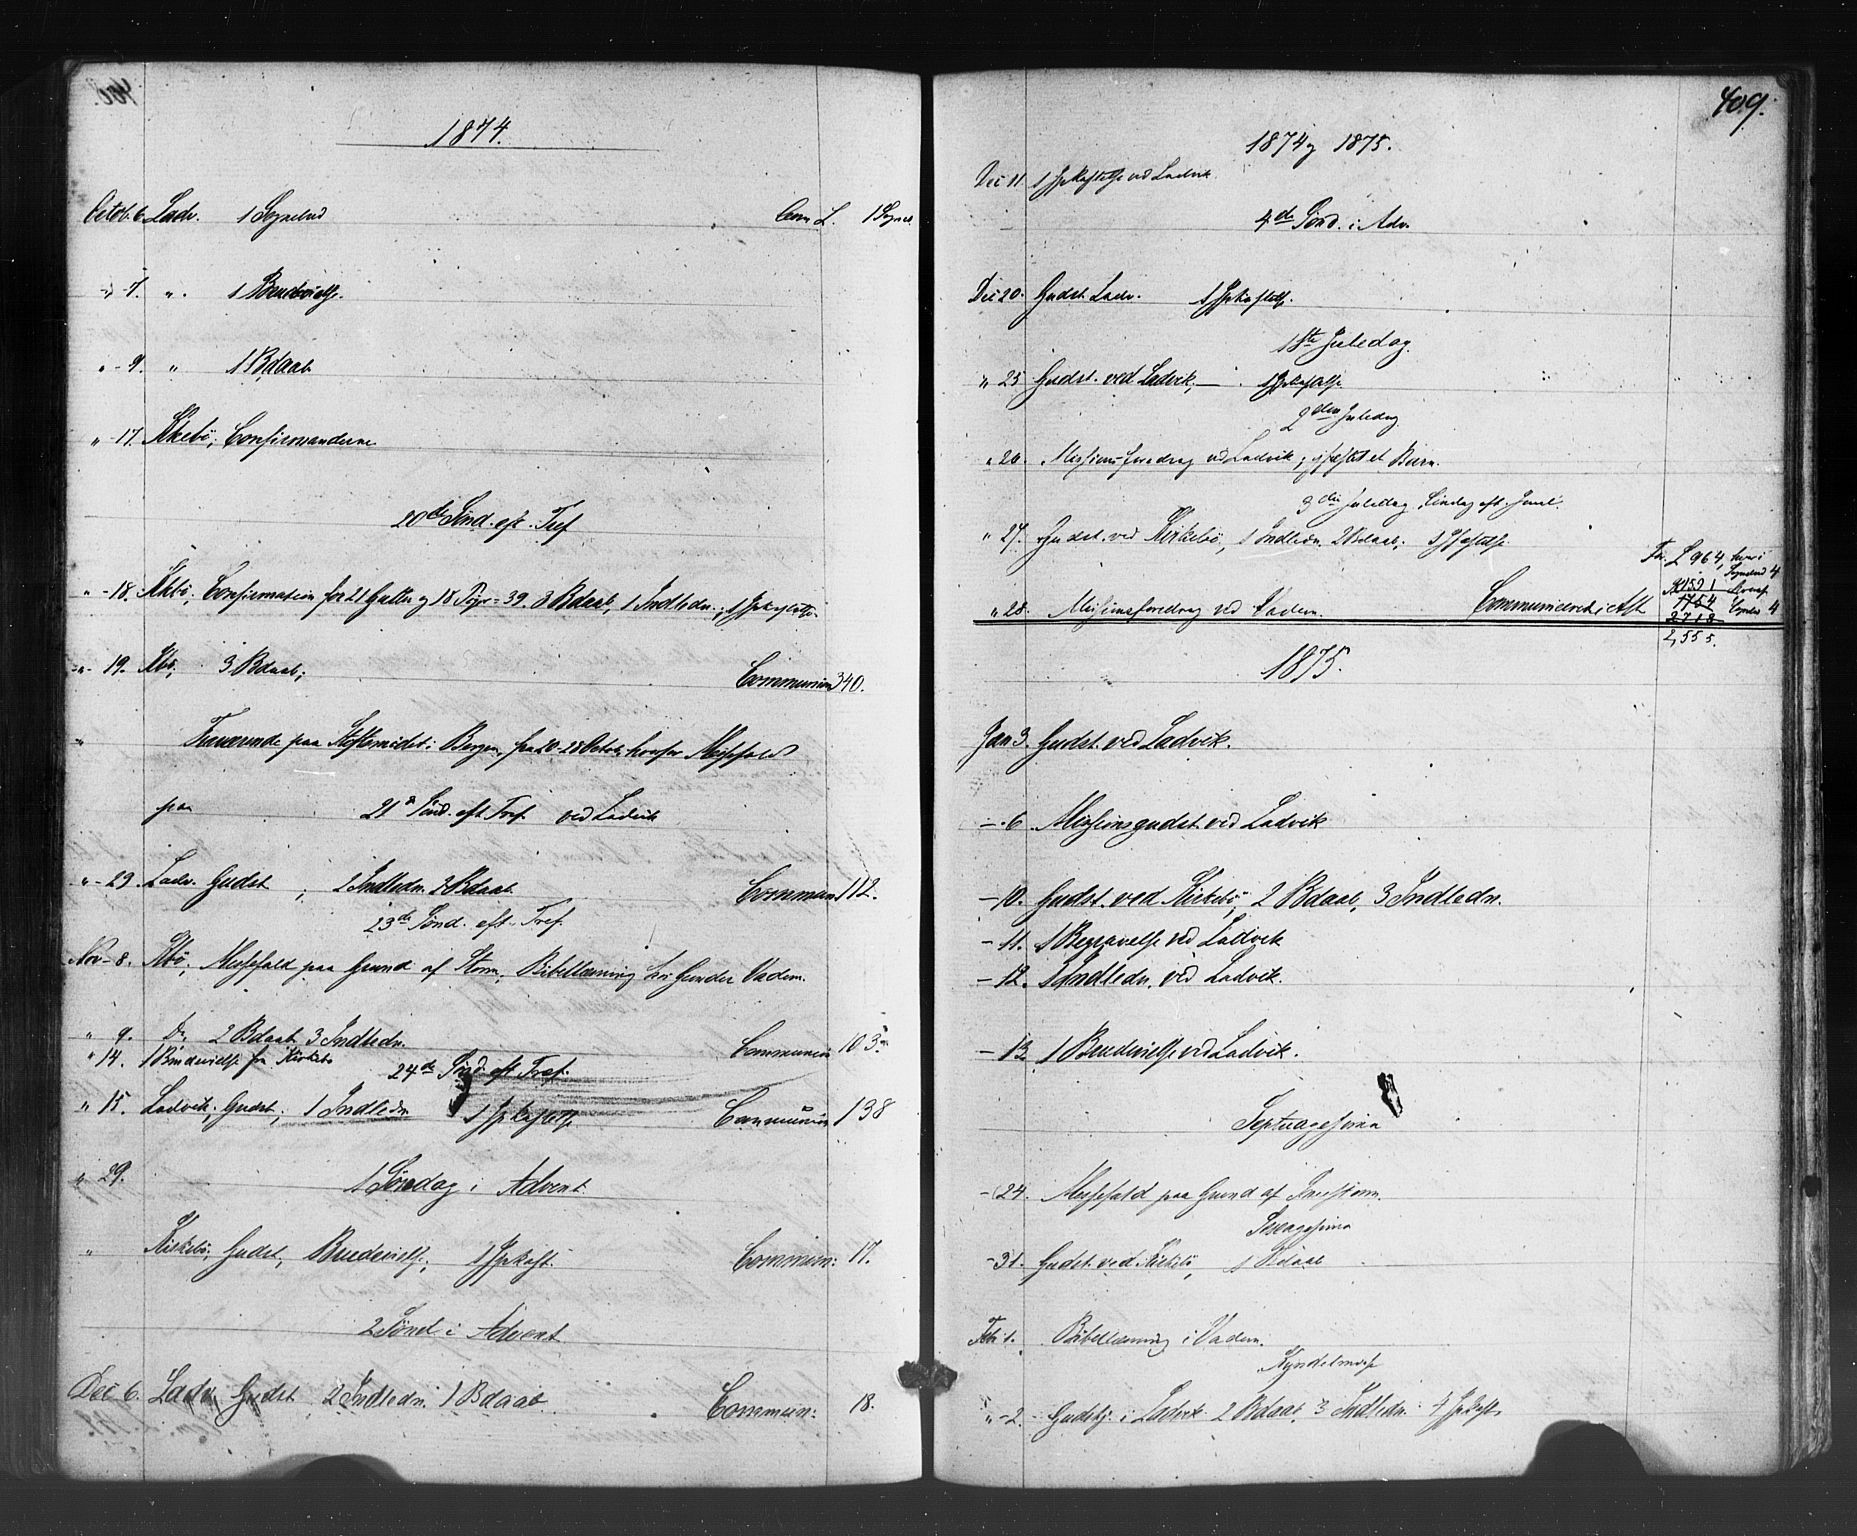 1874.
Octob. 6. Ladv. 1 Sognebud Com L. 1 Sogneb.
" - 7. " 1 Brudevielse.
" - 9. " 1 Bdaab
" - 17. Kkebö; Confirmanderne
20de Sönd. eft. Tref
" - 18. Kkbö; Confirmation for 21 Gutter og 18 Piger = 39. 3 Bdaab, 1 Indledn.; 1 Jpkastelse.
" - 19. Kbö; 3 Bdaab; Communion 340.
" Fraværende paa Stiftsmödet i Bergen, fra 20-28 Octob, hvorfor Messefald
paa 21de Sönd. eft Tref. ved Ladvik
" - 29. Ladv. Gudst ; 2 Indledn. 2 Bdaab Commun 112.
23de Sönd. eft. Tref.
Nov - 8. Kbö; Messefald paa Grund af Storm, Bibellæsning hos Gunder Vadem.
" 9. Do 2 Bdaab 3 Indledn. Communion 103.
" 14. 1 Brudevielse fra Kirkebö
24de Sönd. eft Tref.
" 15. Ladvik; Gudst; 1 Indledn 1 Jpkastelse Communion 138
" 29. 1 Söndag i Advent
" Kirkebö; Gudst, Brudevielse; 1 Jpkast. Commun: 17.
2 Sönd i Advent
Dec 6. Ladv. Gudst 2 Indledn. 1 Bdaab Commun: 18.
409.
1874 og 1875.
Dec 11. 1 Jpkastelse ved Ladvik
4de Sönd. i Adv.
Dec 20. Gudst Ladv. 1 Jpkastelse.
1ste Juledag.
" 25 Gudst. ved Ladvik, — . 1 Jpkastelse
2den Juledag
" 26. Missionsforedrag ved Ladvik; et Barn.
3die Juledag, Söndag eft. Juul.
" 27. Gudst. ved Kirkebö, 1 Indledn. 2 Bdaab;
L 964, hvori
Sognebud 4
1521
" 28. Missionsforedrag ved Vadem. Communicerede i Alt 1754 4
2718
2,555.
1875.
Jan 3. Gudst. ved Ladvik.
— 6 Missionsgudst ved Ladvik
— 10. Gudst. ved Kirkebö, 2 Bdaab, 3 Indledn.
— 11. 1 Begravelse ved Ladvik
— 12. 1 Indledn. ved Ladvik.
— 13 1 Brudevielse ved Ladvik.
Septuagesima
— 24. Messefald paa Grund af Sneestorm
Sexagesima
— 31. Gudst. ved Kirkebö, 1 Bdaab
Febr 1. Bibellæsning i Vadem.
Kyndelmisse
" - 2. Gudstj. i Ladvik. 2 Bdaab, 3 Indledn. 4 Jpkast.